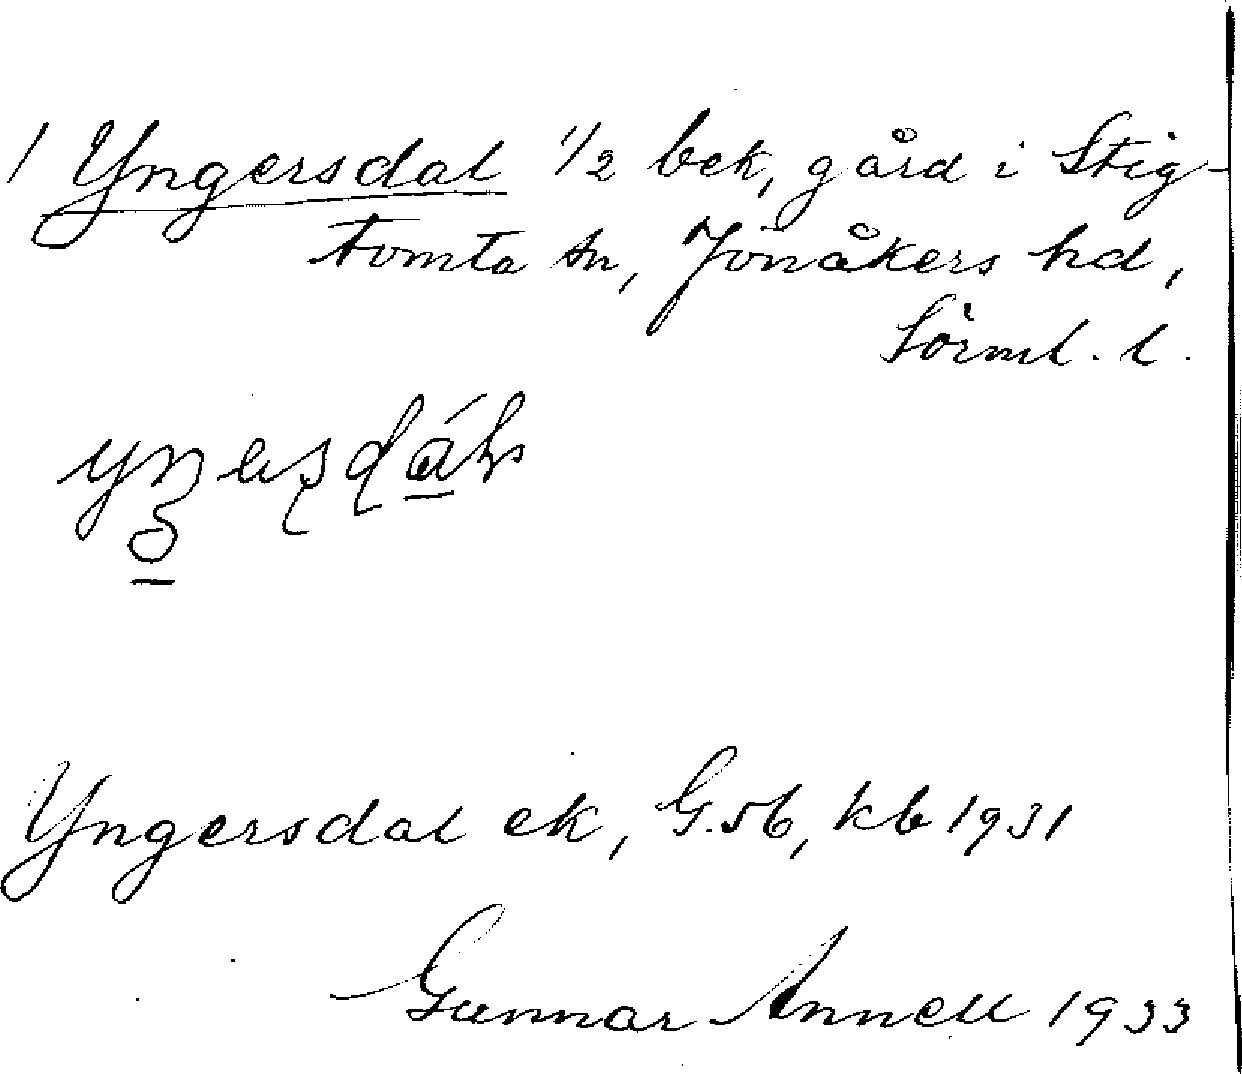 1 Yngersdal 1/2 bek, gård i Stig-
tomta sn, Jönåkers hd,
Sörml. l.
Yngersdal ek, G.5b, kb 1931
Gunnar Annell 1933